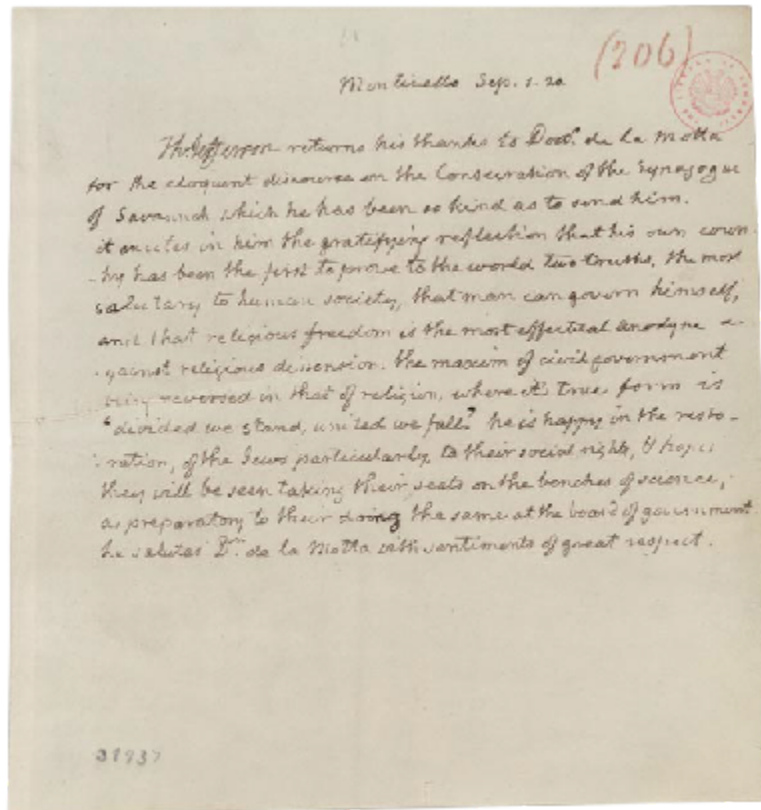 (206)
Monticello Sep. 1. 20
Th: Jefferson returns his thanks to Doctr. de la Motta
for the eloquent discourse on the Consecration of the Synagogue
of Savannah which he has been so kind as to send him.
it excites in him the gratifying reflection that his own coun-
-try has been the first to prove to the world two truths, the most
salutary to human society, that man can govern himself,
and that religious freedom is the most effectual anodyne a-
-gainst religious dissension. the maxim of civil government
being reversed in that of religion, where it's true form is
"divided we stand, united we fall." he is happy in the resto-
-ration, of the Jews particularly, to their social rights, & hopes
they will be seen taking their seats on the benches of science,
as preparatory to their doing the same at the board of government.
he salutes Dr. de la Motta with sentiments of great respect.